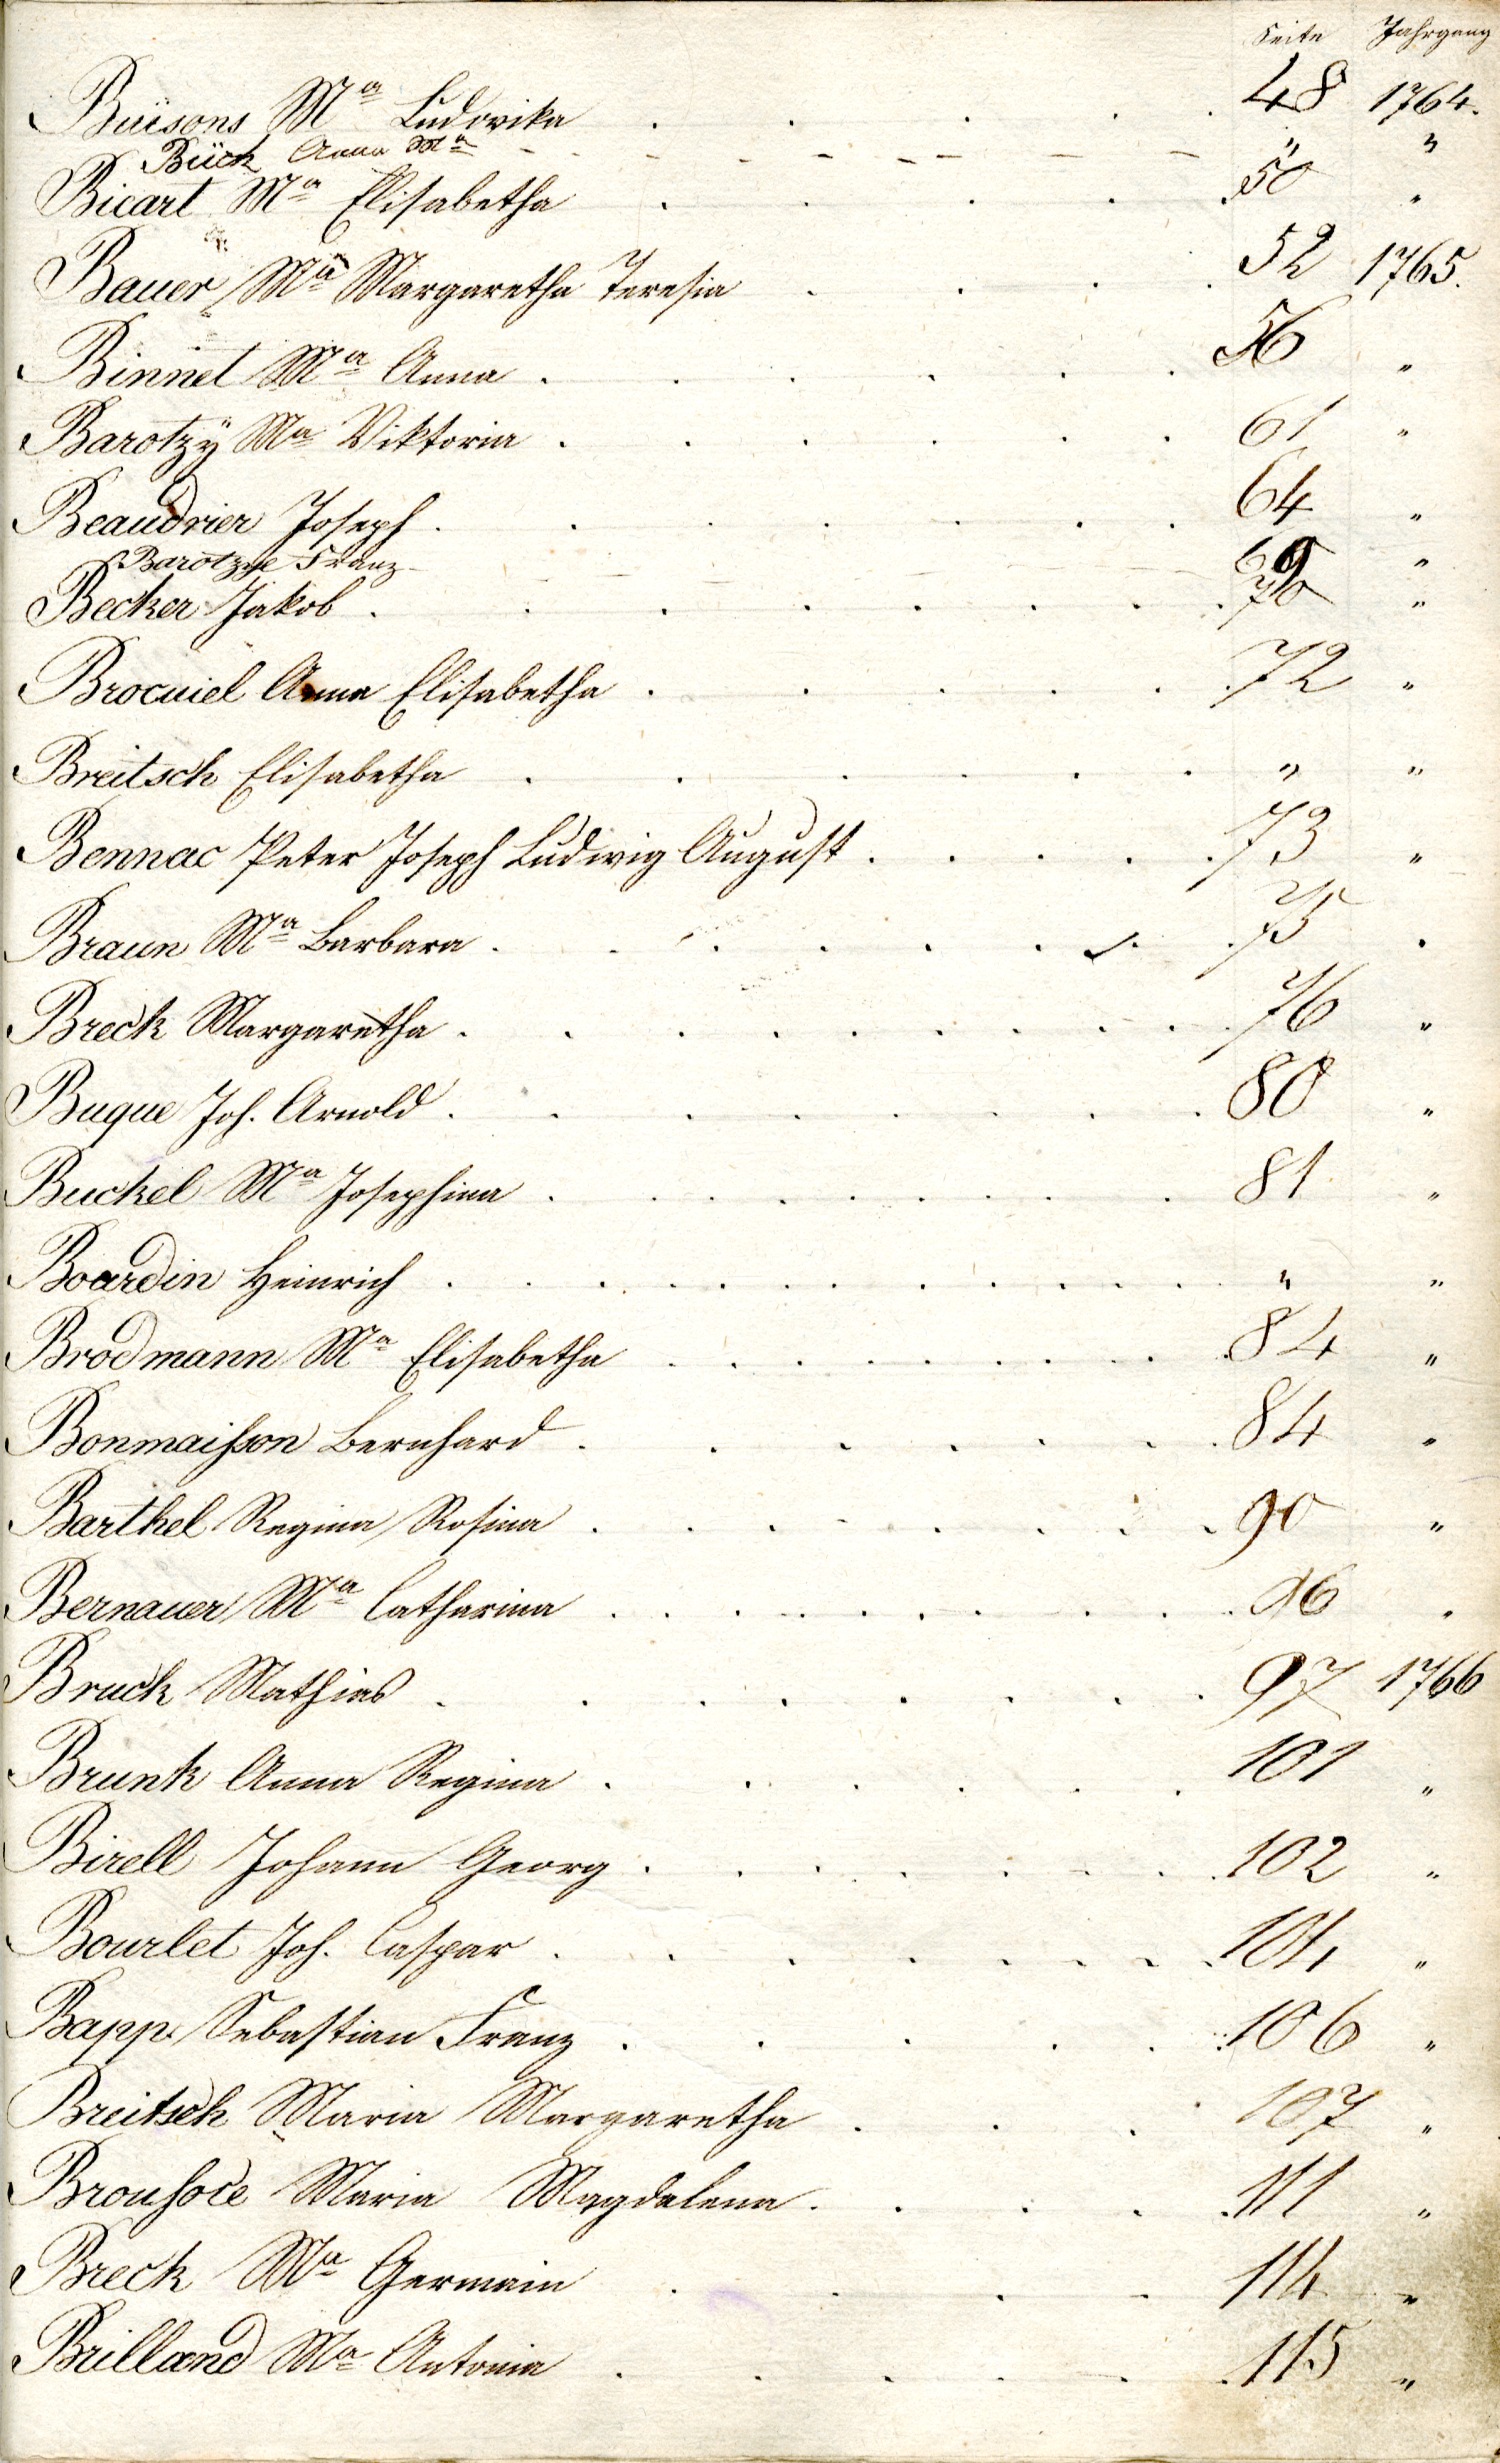 Seite Jahrgang
Buisons Ma Ludovika . . . . . 48 1764.
Bück Anna Ma - - - - - - - " "
Bicart Ma Elisabetha . . . . . 50 "
Bauer Ma Margaretha Teresia . . . . 52 1765.
Binnet Ma Anna . . . . . . 56 "
Barotzÿ Ma Viktoria . . . . . . 61 "
Beaudrier Joseph . . . . . . . 64 "
Barotzye Franz - - - - 69 "
Becker Jakob . . . . . . . . 70 "
Brocuiel Anna Elisabetha . . . . . . 72 "
Breitsch Elisabetha . . . . . . " "
Bennac Peter Joseph Ludwig August . . . . . 73 "
Braun Ma Barbara . . . . . . . 75 "
Breck Margaretha . . . . . . . . . 76 "
Buque Joh. Arnold . . . . . . . . 80 "
Buckel Ma Josephina . . . . . . . . 81 "
Boardin Heinrich . . . . . . . . . . " "
Brodmann Ma Elisabetha . . . . . . . . . 84 "
Bonmaisson Bernhard . . . . . . . 84 "
Barthel Regina Rosina . . . . . . . . 90 "
Bernauer Ma Catharina . . . . . . . . . . 96 "
Bruck Mathias . . . . . . . . . 97 1766
Brunk Anna Regina . . . . . . 101 "
Birell Johann Georg . . . . . . . . 102 "
Bourlet Joh. Caspar . . . . . . . . 104 "
Bapp Sebastian Franz . . . . . . 106 "
Breitsch Maria Margaretha . . . . 107 "
Broussoce Maria Magdalena . . . . . 111 "
Breck Ma Germain . . . . . 114 "
Brilland Ma Antonia . . . . . . 115 "